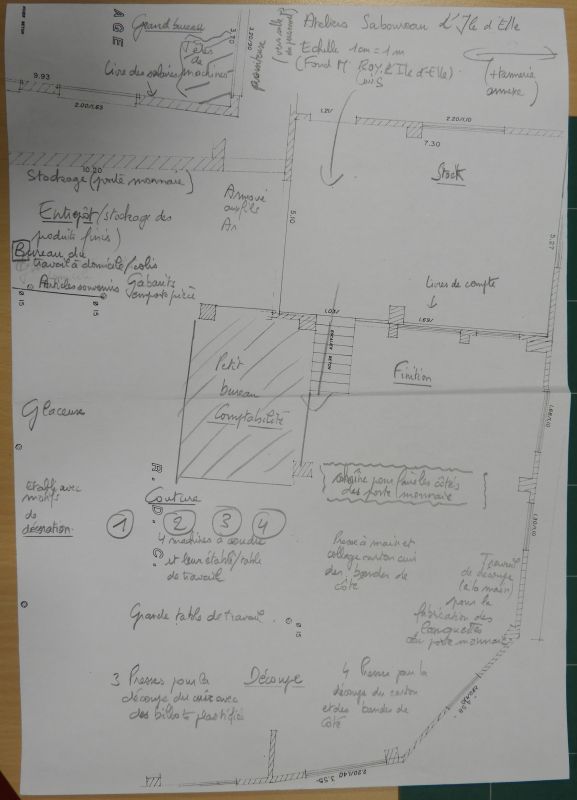 Ateliers Sabouneau d'Ile d'Elle
Echelle 1cm = 1m
(Fond M. Roy & Ile d'Elle)
(Harmonie
annexe)
Grand bureau
Livre des salaires/machines
AGE
9.93
2.00/1.63
3.70
1.21/
2.20/1.10
7.30
Stock
10.20
Stockage (porte monnaie)
Entrepôt/stockage des
produits finis)
Bureau du
travail à domicile/colis
Articles souvenirs Gabarits
emporte pièce
Ø 15
Ø 15
5.10
5.27
Livres de compte
1.03/
1.59/
Petit
bureau
Comptabilité
Finition
Glaceuse
R. D. C.
machine pour faire les côtés
des porte monnaie
Etabli avec
motifs
de
décoration.
Couture
1 2 3 4
4 machines à coudre
et leur établi/table
de travail
Presse à main et
collage carton cuir
des bandes de
côté
Travail
de découpe
(à la main)
pour la
fabrication des
languettes
du porte monnaie
Grande table de travail.
Ø 15
3 Presses pour la
découpe du cuir avec
des billots plastifié
Découpe
4 Presses pour la
découpe du carton
et des bandes de
côté
2.20/1.40 3.55